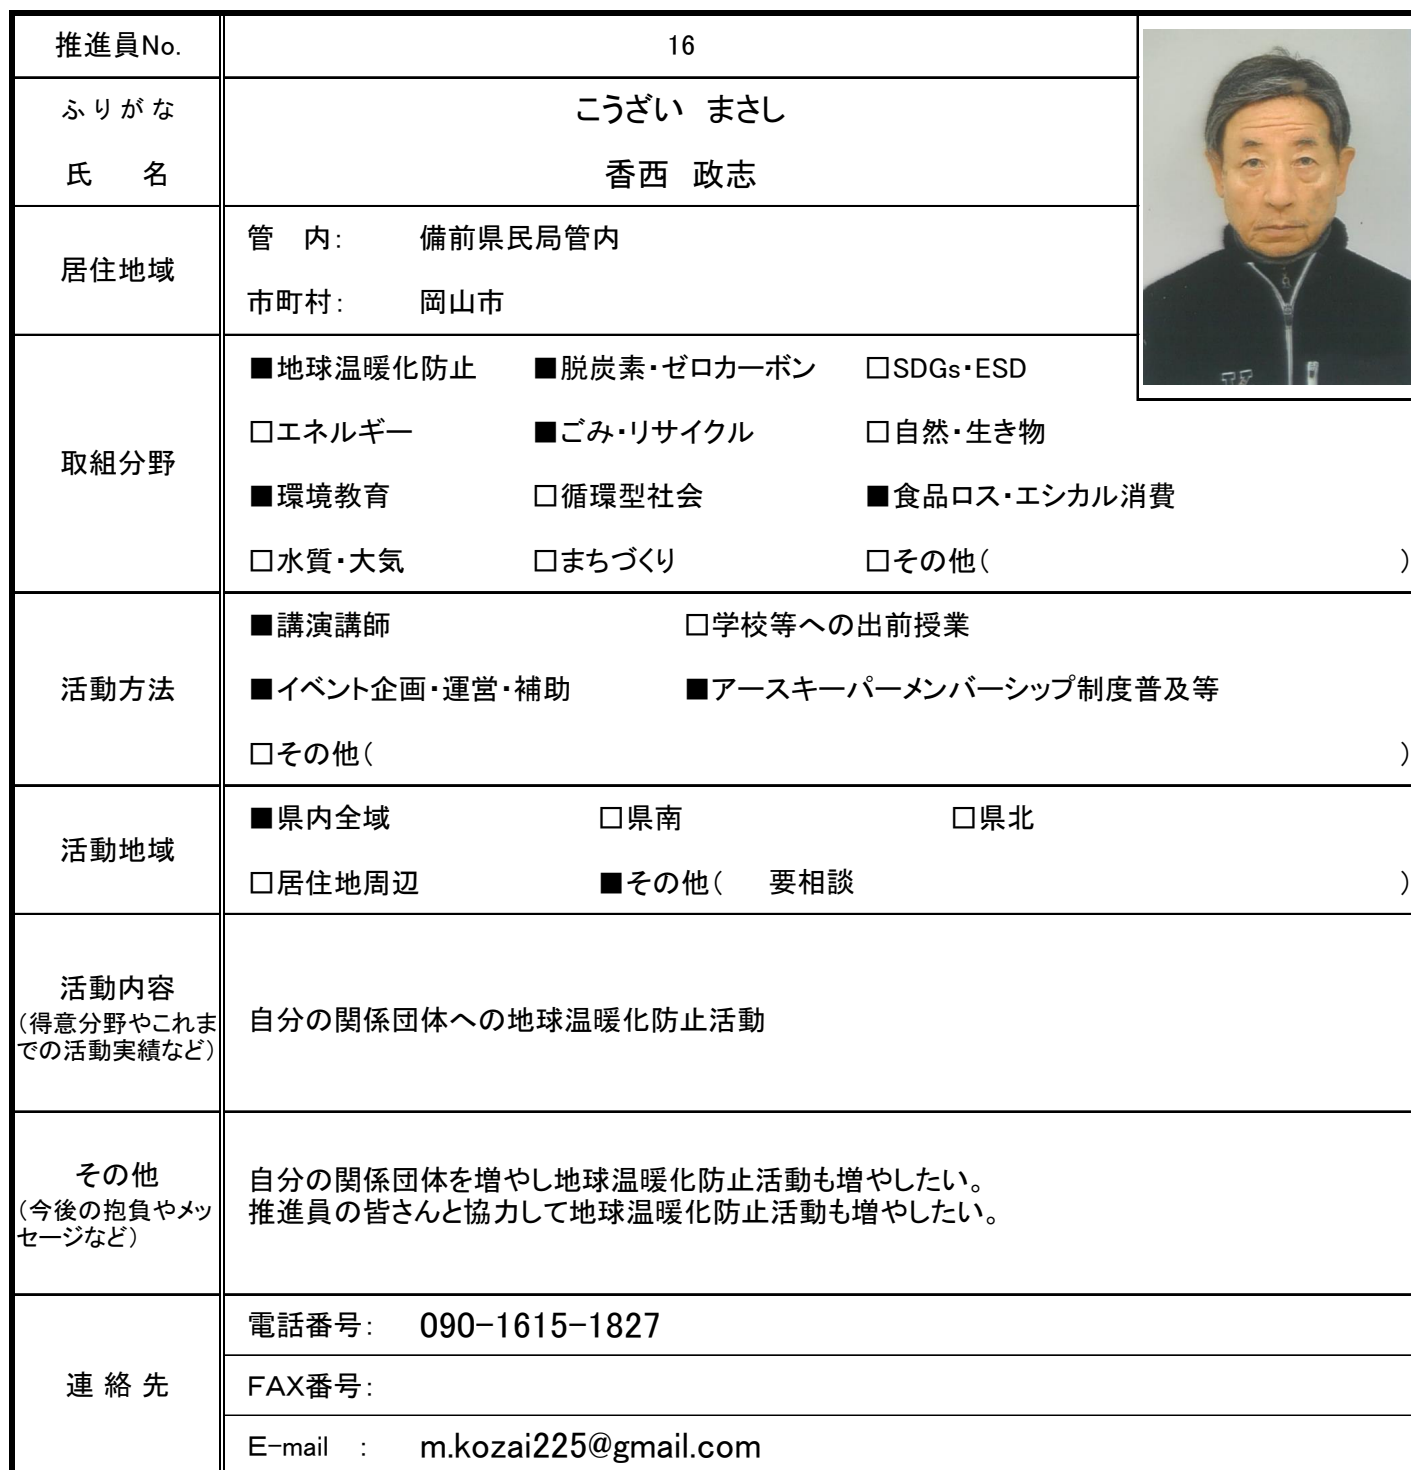 推進員No. 16
ふりがな こうざい まさし
氏 名 香西 政志
居住地域
管 内: 備前県民局管内
市町村: 岡山市
取組分野
■地球温暖化防止 ■脱炭素・ゼロカーボン □SDGs・ESD
□エネルギー ■ごみ・リサイクル □自然・生き物
■環境教育 □循環型社会 ■食品ロス・エシカル消費
□水質・大気 □まちづくり □その他( )
活動方法
■講演講師 □学校等への出前授業
■イベント企画・運営・補助 ■アースキーパーメンバーシップ制度普及等
□その他( )
活動地域
■県内全域 □県南 □県北
□居住地周辺 ■その他( 要相談 )
活動内容
(得意分野やこれま
での活動実績など)
自分の関係団体への地球温暖化防止活動
その他
(今後の抱負やメッ
セージなど)
自分の関係団体を増やし地球温暖化防止活動も増やしたい。
推進員の皆さんと協力して地球温暖化防止活動も増やしたい。
連絡先
電話番号: 090-1615-1827
FAX番号:
E-mail : m.kozai225@gmail.com